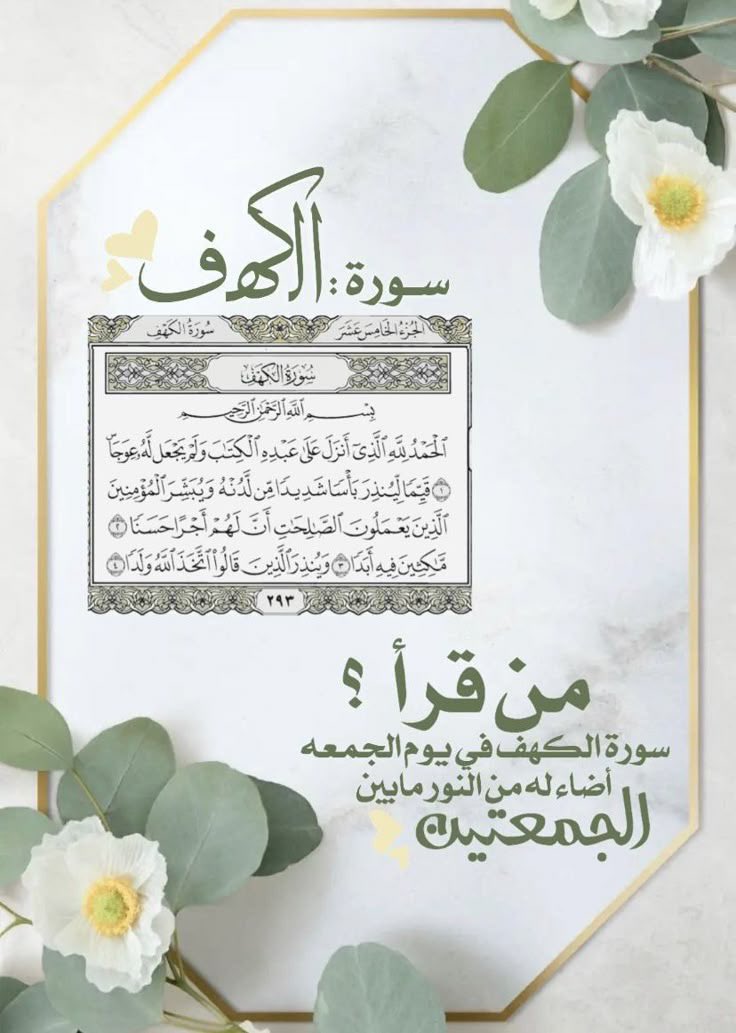 سورة: الكهف
الجزء الخامس عشر سورة الكهف
سورة الكهف
بسم الله الرحمن الرحيم
ٱلْحَمْدُ لِلَّهِ ٱلَّذِىٓ أَنزَلَ عَلَىٰ عَبْدِهِ ٱلْكِتَٰبَ وَلَمْ يَجْعَل لَّهُۥ عِوَجَاۜ
١ قَيِّمًا لِّيُنذِرَ بَأْسًا شَدِيدًا مِّن لَّدُنْهُ وَيُبَشِّرَ ٱلْمُؤْمِنِينَ
ٱلَّذِينَ يَعْمَلُونَ ٱلصَّٰلِحَٰتِ أَنَّ لَهُمْ أَجْرًا حَسَنًا ٢
مَّٰكِثِينَ فِيهِ أَبَدًا ٣ وَيُنذِرَ ٱلَّذِينَ قَالُوا۟ ٱتَّخَذَ ٱللَّهُ وَلَدًا ٤
٢٩٣
من قرأ ؟
سورة الكهف في يوم الجمعه
أضاء له من النور مابين
الجمعتين